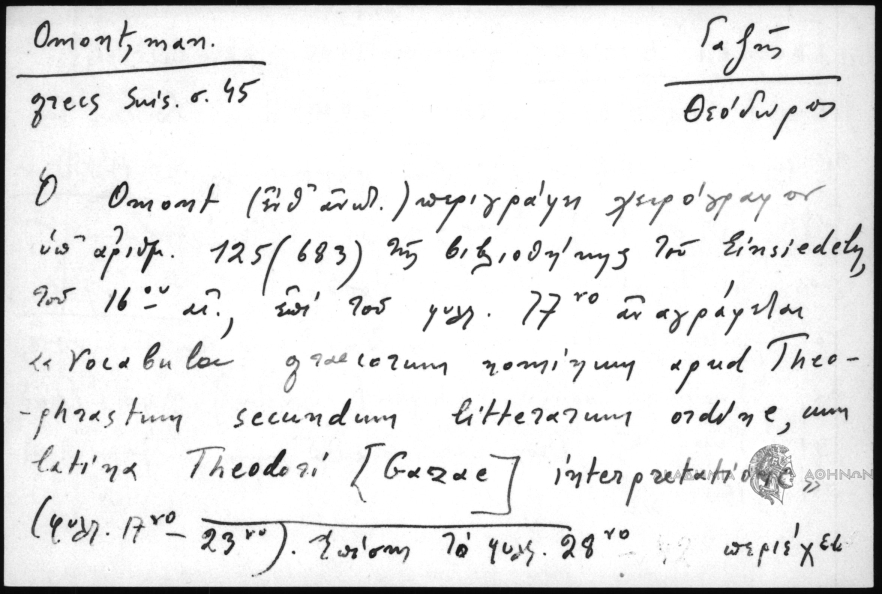 Omont, man.
grecs Suis. σ. 45
Γαζῆς
Θεόδωρος
Ὁ Omont (ἔνθ' ἀνωτ.) περιγράφει χειρόγραφον
ὑπ' ἀριθμ. 125 (683) τῆς βιβλιοθήκης τοῦ Einsiedeln,
τοῦ 16ου αἰ., ἐπὶ τοῦ φυλλ. 17ro ἀναγράφεται
«Vocabula graecorum nominum apud Theo-
-phrastum secundum litterarum ordine, cum
latina Theodori [Gazae] interpretatione»
(φυλλ. 17ro - 23vo). Ἐπίσης τὸ φυλλ. 28ro περιέχει
ΑΘΗΝΩΝ